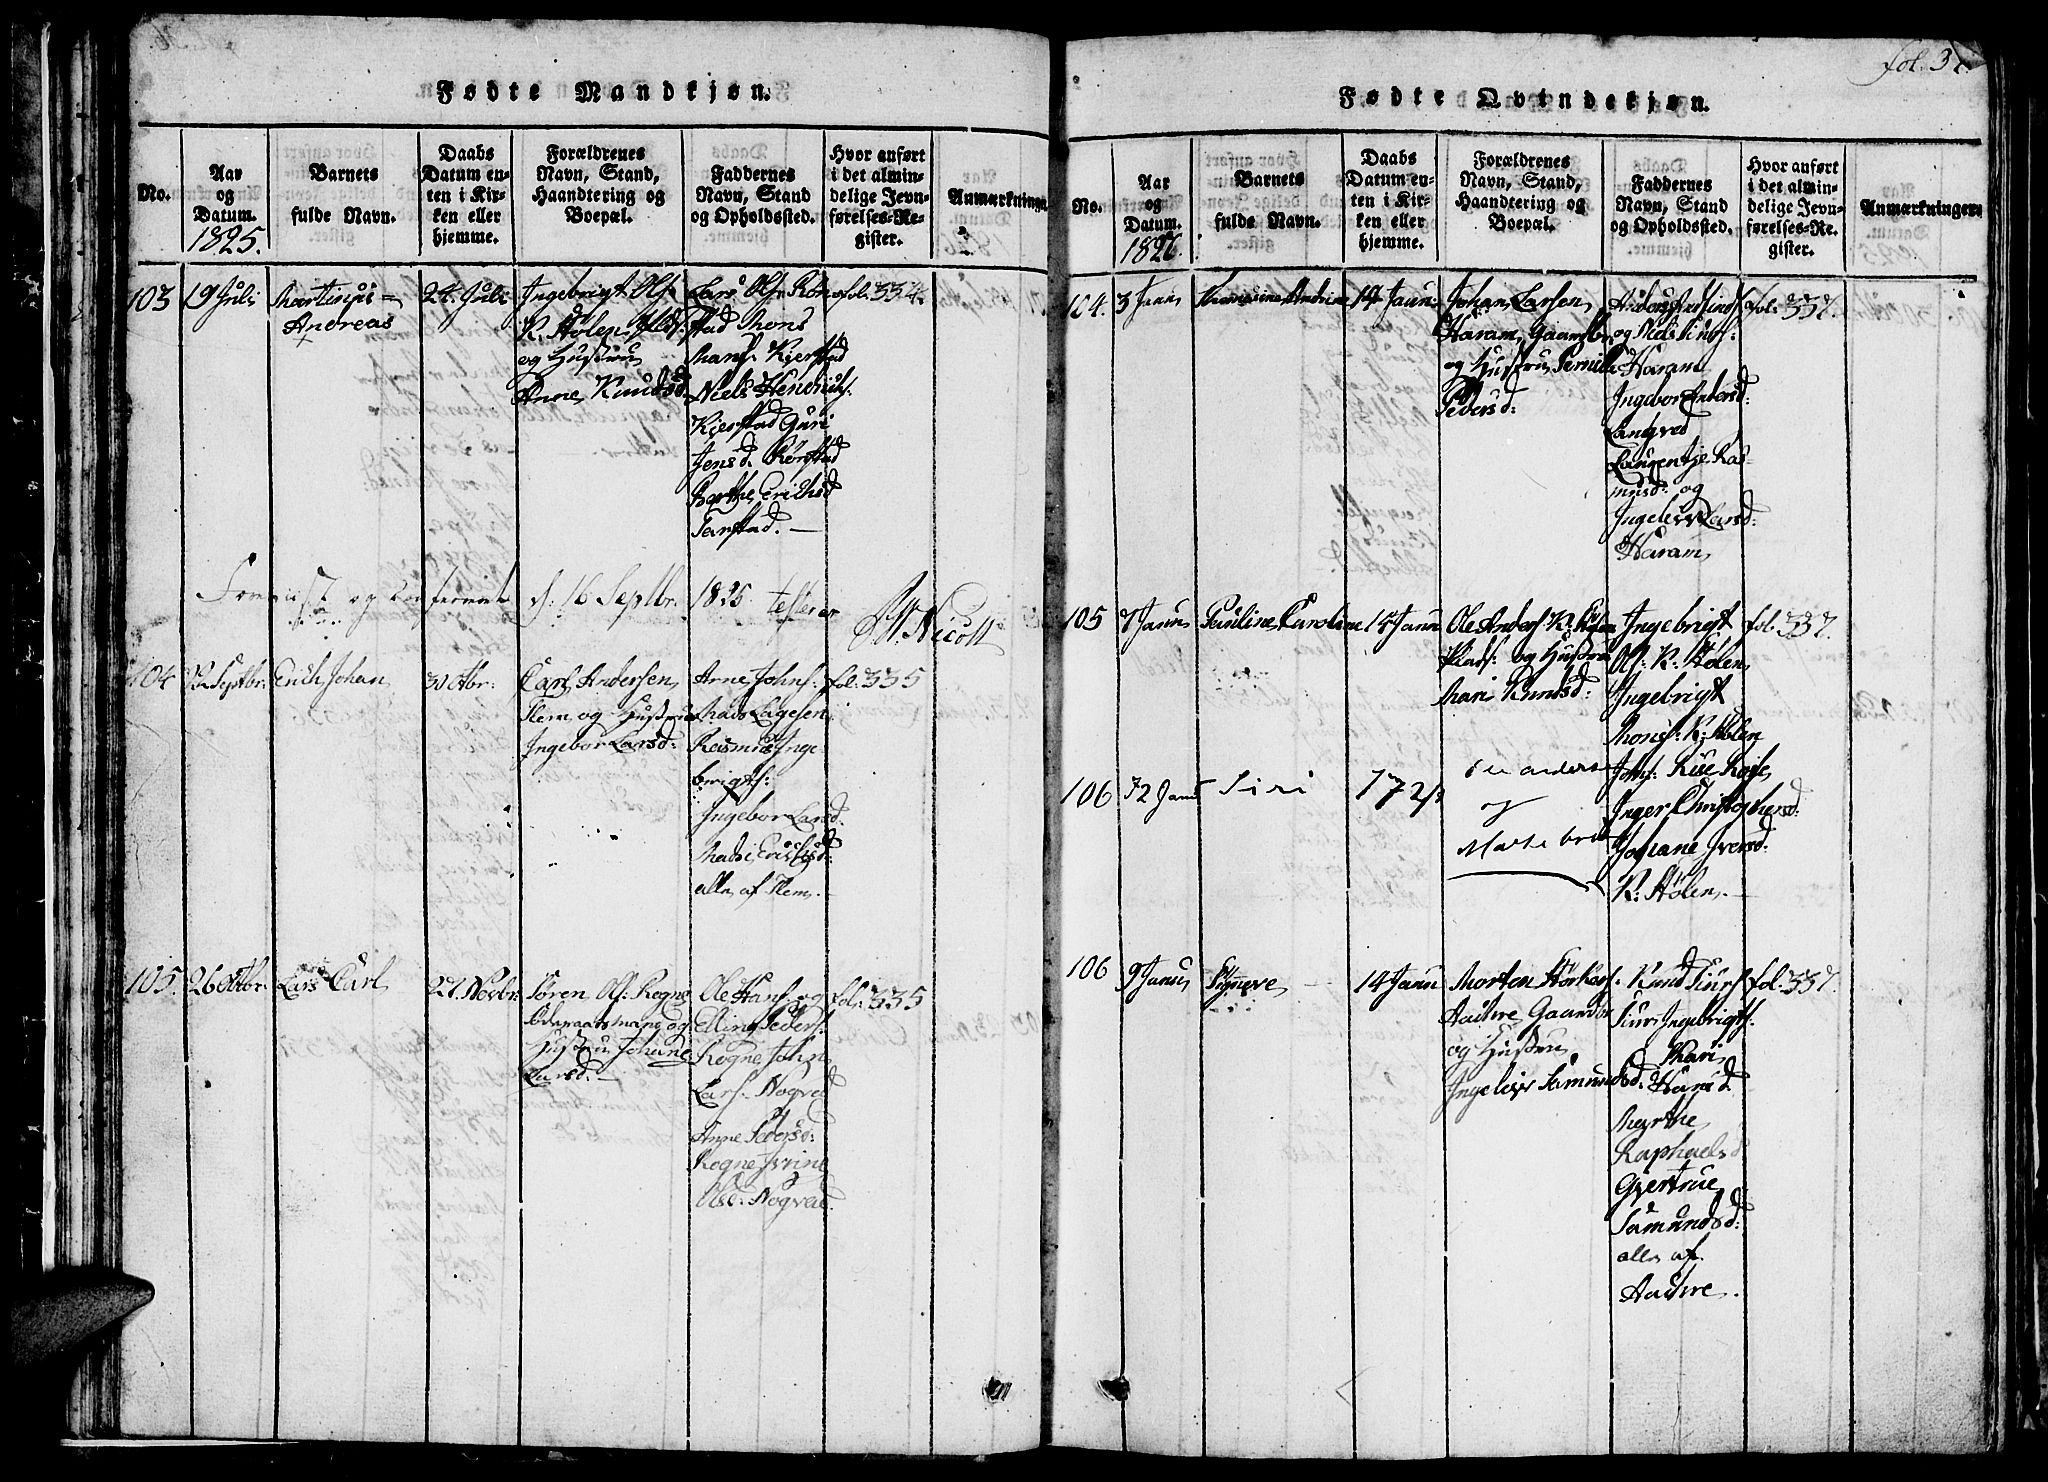 Fødte Mandkjøn.
No.
Aar og Datum.
1825.
Barnets fulde Navn.
Daabs Datum enten i Kirken eller hjemme.
Forældrenes Navn, Stand, Haandtering og Boepæl.
Faddernes Navn, Stand og Opholdssted.
Hvor anført i det almindelige Jevnførelses-Register.
Anmærkninger
103
19 Juli
Martinus
Andreas
24. Juli
Ingebrigt Ols:
K. Stølen Plds:
og Hustrue
Anne Knudsd
Lars Ols:
stad Mons
Mons: Kjerstad
Niels Hendrichs:
Kjerstad Guri
Jensd. Rønstad
Berthe Erichsd
Tarstad.
fol. 334.
og Confereret d: 16 Septbr. 1825 testerer
104
Septbr:
Erich Johan
30 Octbr:
Carl Andersen
Flem og Hustrue
Ingebor Larsd:
Arne Johns:
Mads Lagesen
Rasmus Inge
brigts:
Ingebor Larsd.
Erichsd:
alle af Flem.
fol. 335
105.
26 Octbr:
Lars Carl
27. Novbr:
Søren Ols: Rogne
og
Hustrue Johane
Larsd.
Ole Hans: og
Elling Peders:
Rogne John
Lars: Nogved
Anne Pedersd:
Rogne Ivrine
Olsd: Nogved.
fol. 335
fol. 37.
Fødte Qvindekjøn.
No.
Aar og Datum.
1826.
Barnets fulde Navn.
Daabs Datum enten i Kirken eller hjemme.
Forældrenes Navn, Stand, Haandtering og Boepæl.
Faddernes Navn, Stand og Opholdssted.
Hvor anført i det almindelige Jevnførelses-Register.
Anmærkninger
104.
3 Janu
Andrine
14 Janu:
Johan Larsen
Haram Gaardbr:
og Hustrue Pernille
Pedersd:
og Niels
Haram
Ingebor Andersd:
Langved
Laurentje Ras-
musd: og
Ingeleve Larsd:
Haram
fol: 337.
105
7 Janu
Pauline Caroline
14 Janu
Ole Anders: K. Stølen
Plads: og Hustrue
Mari Knudsd:
Ingebrigt
Ols: K: Stølen
Ingebrigt
Mons: K: Stølen
Inger Christophersd:
Johane Iversd:
K: Stølen.
fol. 337.
106
12 Janu
Siri
Ole anders
og
106
9 Janu
Synneve
14 Janu
Morten
Aachre Gaardbr
og Hustrue
Ingelev Samundsd:
Knud Siurs:
Siur Ingebrigts:
Kari
Marthe
Raphaelsd
Gjertrue
Samundsd:
alle af
Aachre.
fol. 337.